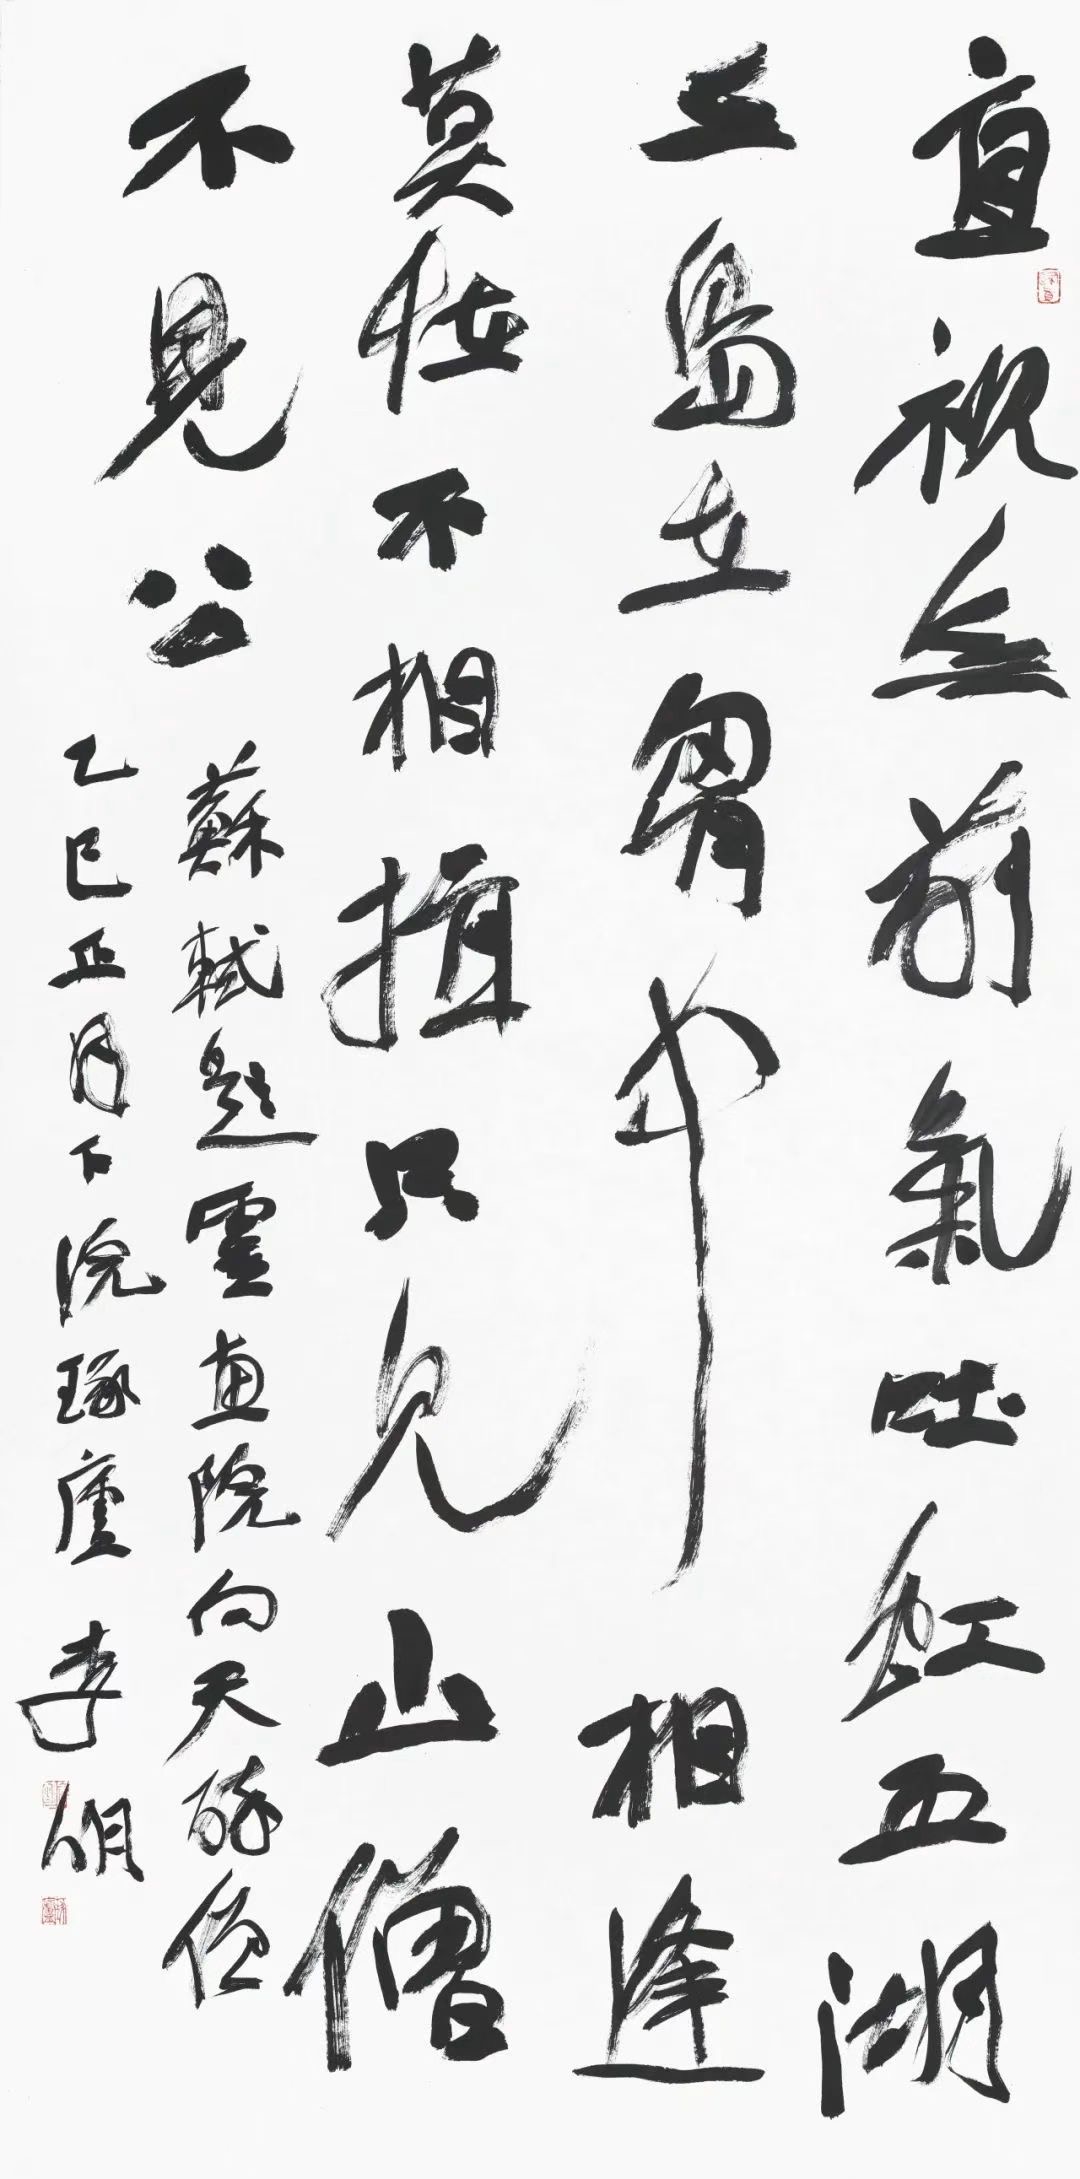 直視無前氣吐虹五湖
三島在胷中相逢
莫怪不相揖只見山僧
不見公
蘇軾題靈惠院向天醉僧
乙巳正月下浣琢廬李明